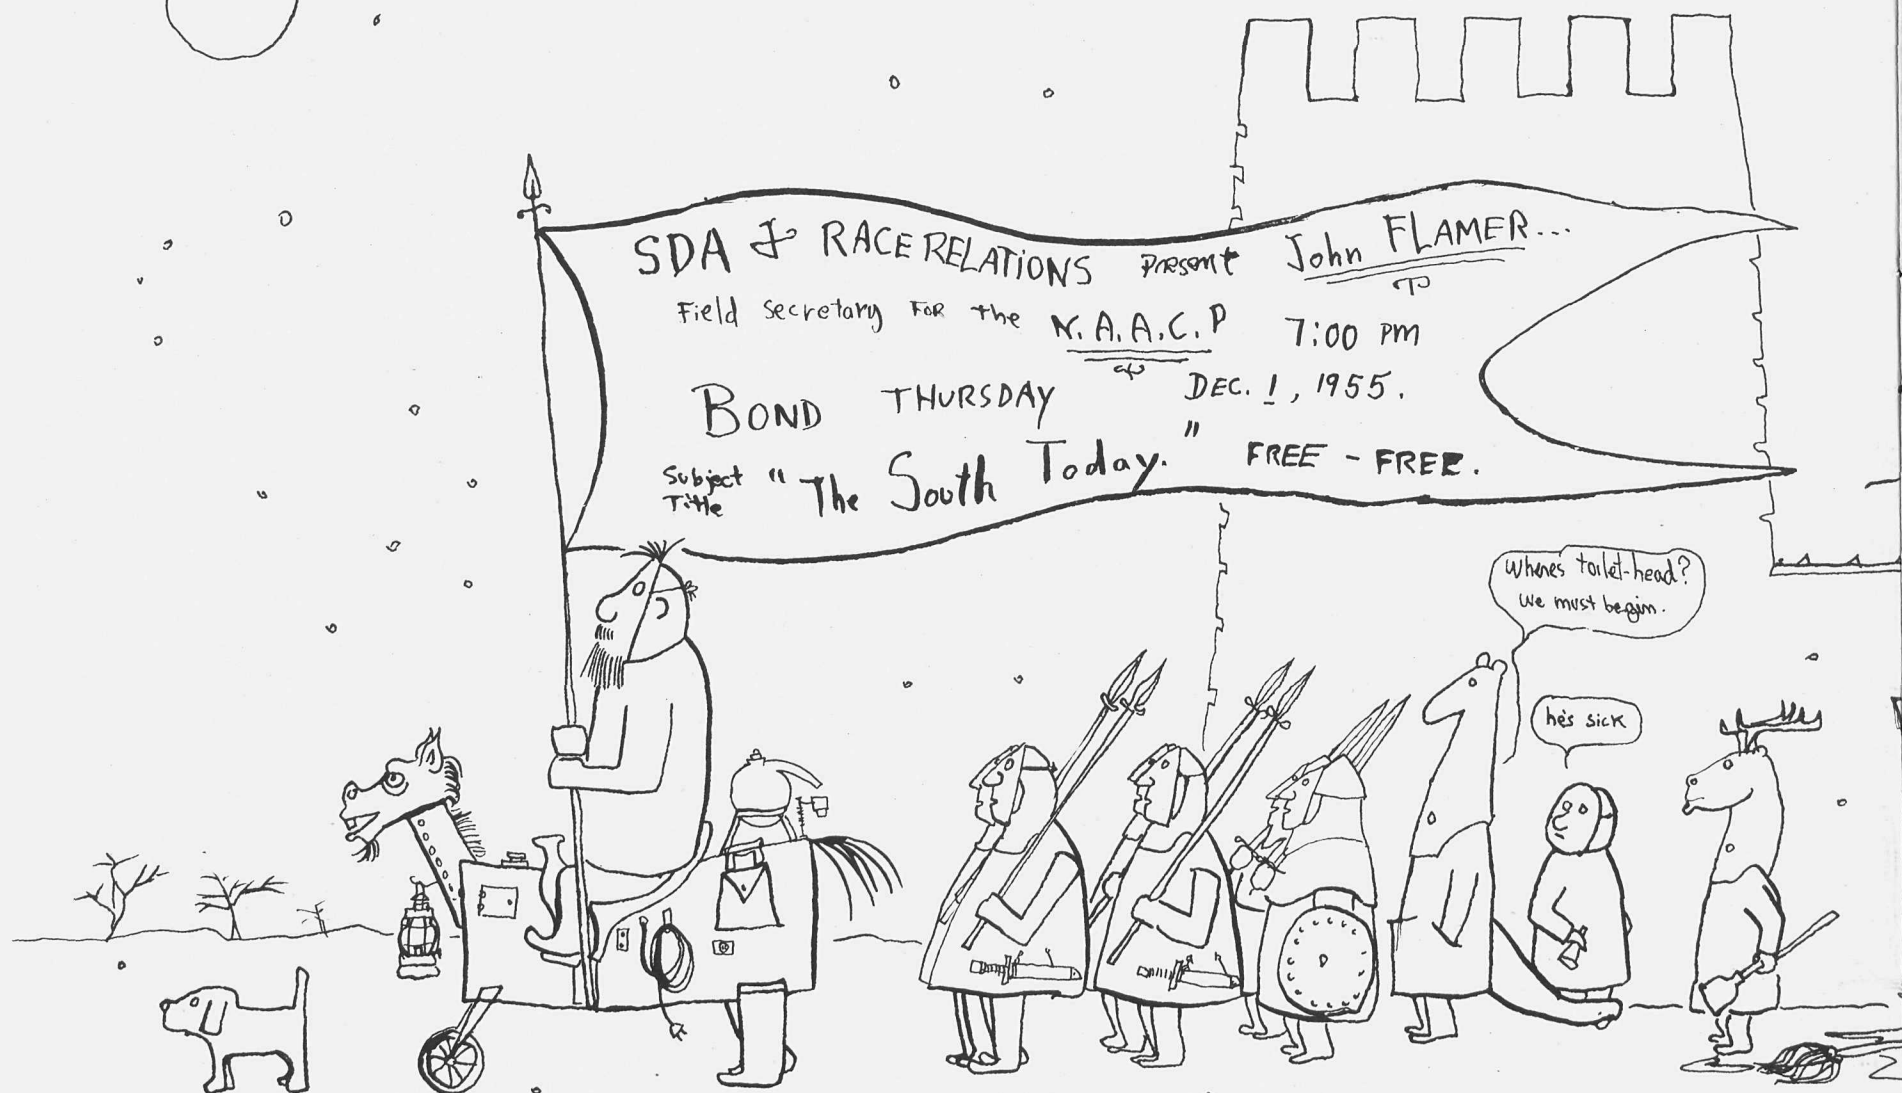 SDA & RACE RELATIONS Present John FLAMER...
Field Secretary FOR the N.A.A.C.P 7:00 PM
BOND THURSDAY DEC. 1, 1955.
Subject Title "The South Today." FREE - FREE.
Where's toilet-head?
We must begin.
he's sick